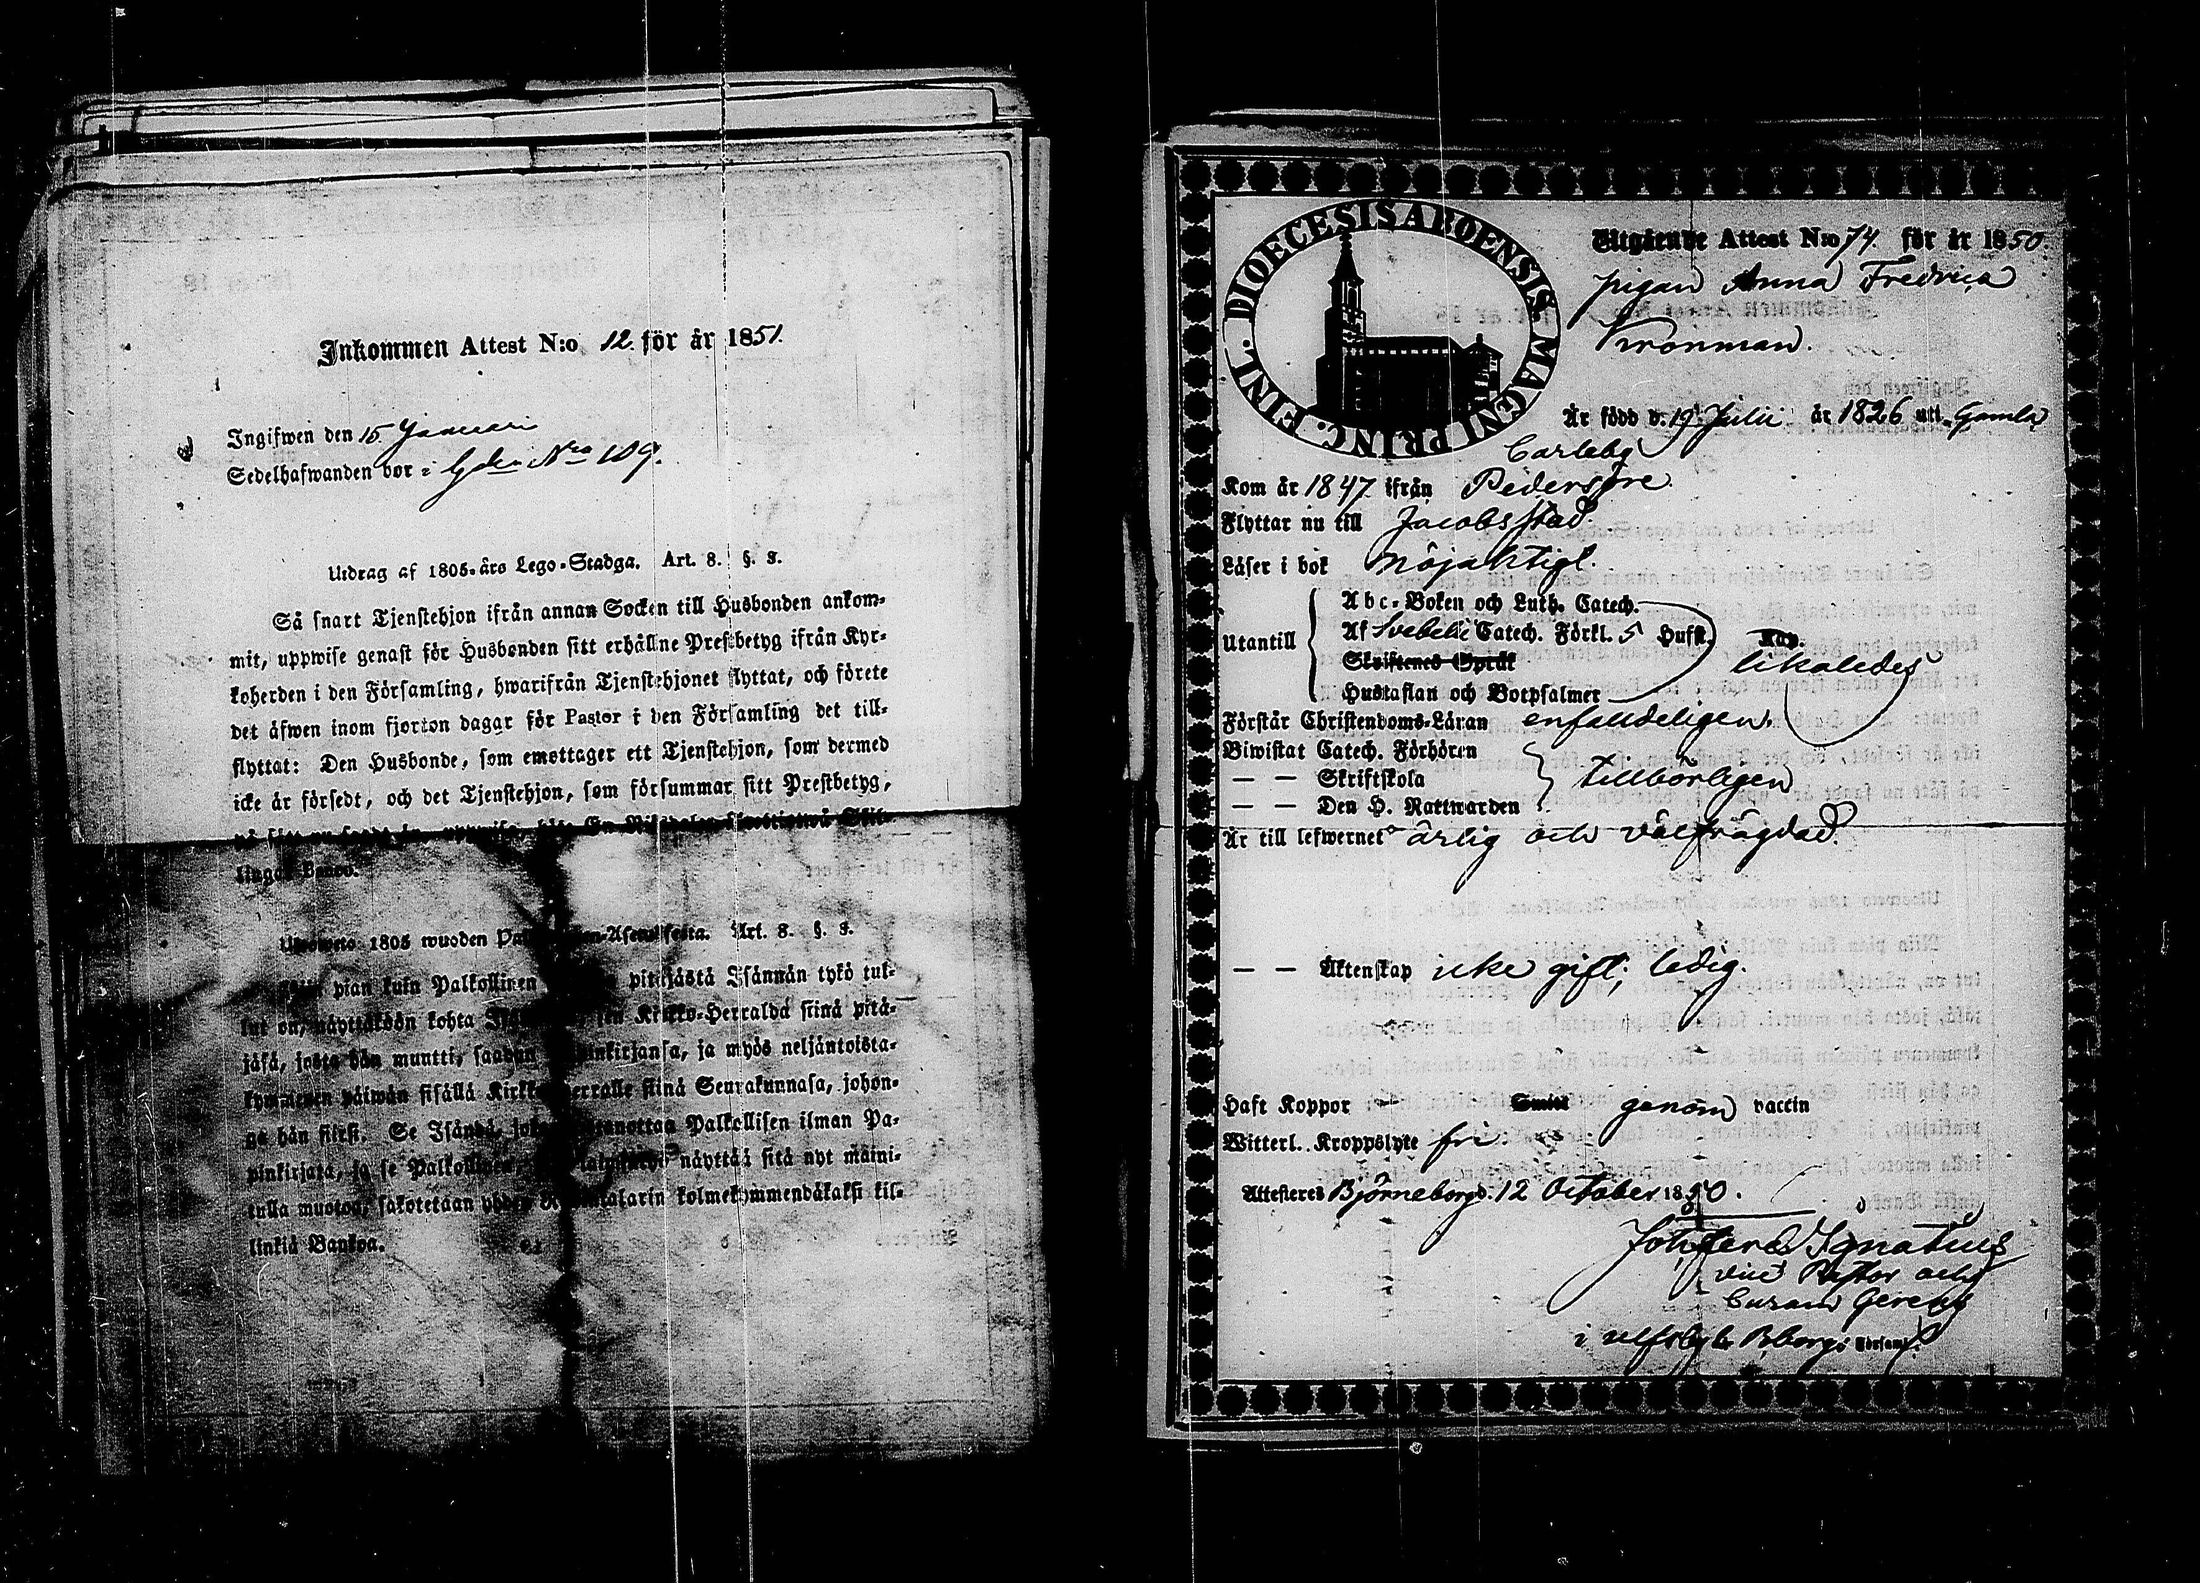 Inkommen Attest N:o 12. för år 1851.
Ingifwen den 15 Januari
Sedelhafwanden bor i Gden Nro 189.
Utdrag af 1805. års Lego-Stadga. Art. 8. §. 3.
Så snart Tjenstehjon ifrån annan Socken till Husbonden ankom-
mit, uppwise genast för Husbonden sitt erhållne Prestbetyg ifrån Kyr-
koherden i den Församling, hwarifrån Tjenstehjonet flyttat, och förete
det äfwen inom fjorton dagar för Pastor i den Församling det till-
flyttat: Den Husbonde, som emottager ett Tjenstehjon, som dermed
icke är försedt, och det Tjenstehjon, som försummar sitt Prestbetyg,
på sätt nu sagdt är, uppwisa, böte En Riksdaler
lingar Banco.
1805 wuoden Art. 8. §. 3.
pian kuin Palkollinen pitäjästä Isännän tykö tul-
lut on, näyttäköön kohta Kirkko-Herralda siinä pitä-
jäsä, josta hän muutti, saadun pinkirjansa, ja myös neljäntoista-
kymmenen päiwän sisällä Kirkkoherralle siinä Seurakunnasa, johon-
ga hän siirsi. Se Isändä, joka Palkollisen ilman Pa-
pinkirjata, ja se Palkollinen, näyttää sitä nyt mäini-
tulla muotoa, sakotetaan yhden kolmekymmendäkaksi kil-
linkiä Bankoa.
DIOECESIS ABOENSIS. MAGNI PRINC. FINL.
Utgående Attest N:o 74. för år 1850.
pigan Anna Fredrica
Kronman.
Är född d. 19 Julii år 1826 uti Gamla
Carleby
Kom år 1847 ifrån Pedersöre
Flyttar nu till Jacobsstad.
Läser i bok nöjaktigt.
Utantill
Abc-Boken och Luth. Catech.
Af Svebelii Catech. Förkl. 5 Hufst. Kap.
Skriftenes Språk
likaledes
Hustaflan och Botpsalmer
Förstår Christendoms-Läran enfaldeligen.
Biwistat Catech. Förhören
— — Skriftskola tillbörligen
— — Den H. Nattwarden
Är till lefwernet ärlig och välfrägdad.
— — Äktenskap icke gift; ledig.
Haft Koppor Smitt genom vaccin
Witterl. Kroppslyte fri
Attesteres Björneborg d. 12 October 1850.
Joh. Ferd. Ignatius
vice Pastor och
Curam Gerens
i Ulfsby & Bborgs Församl.